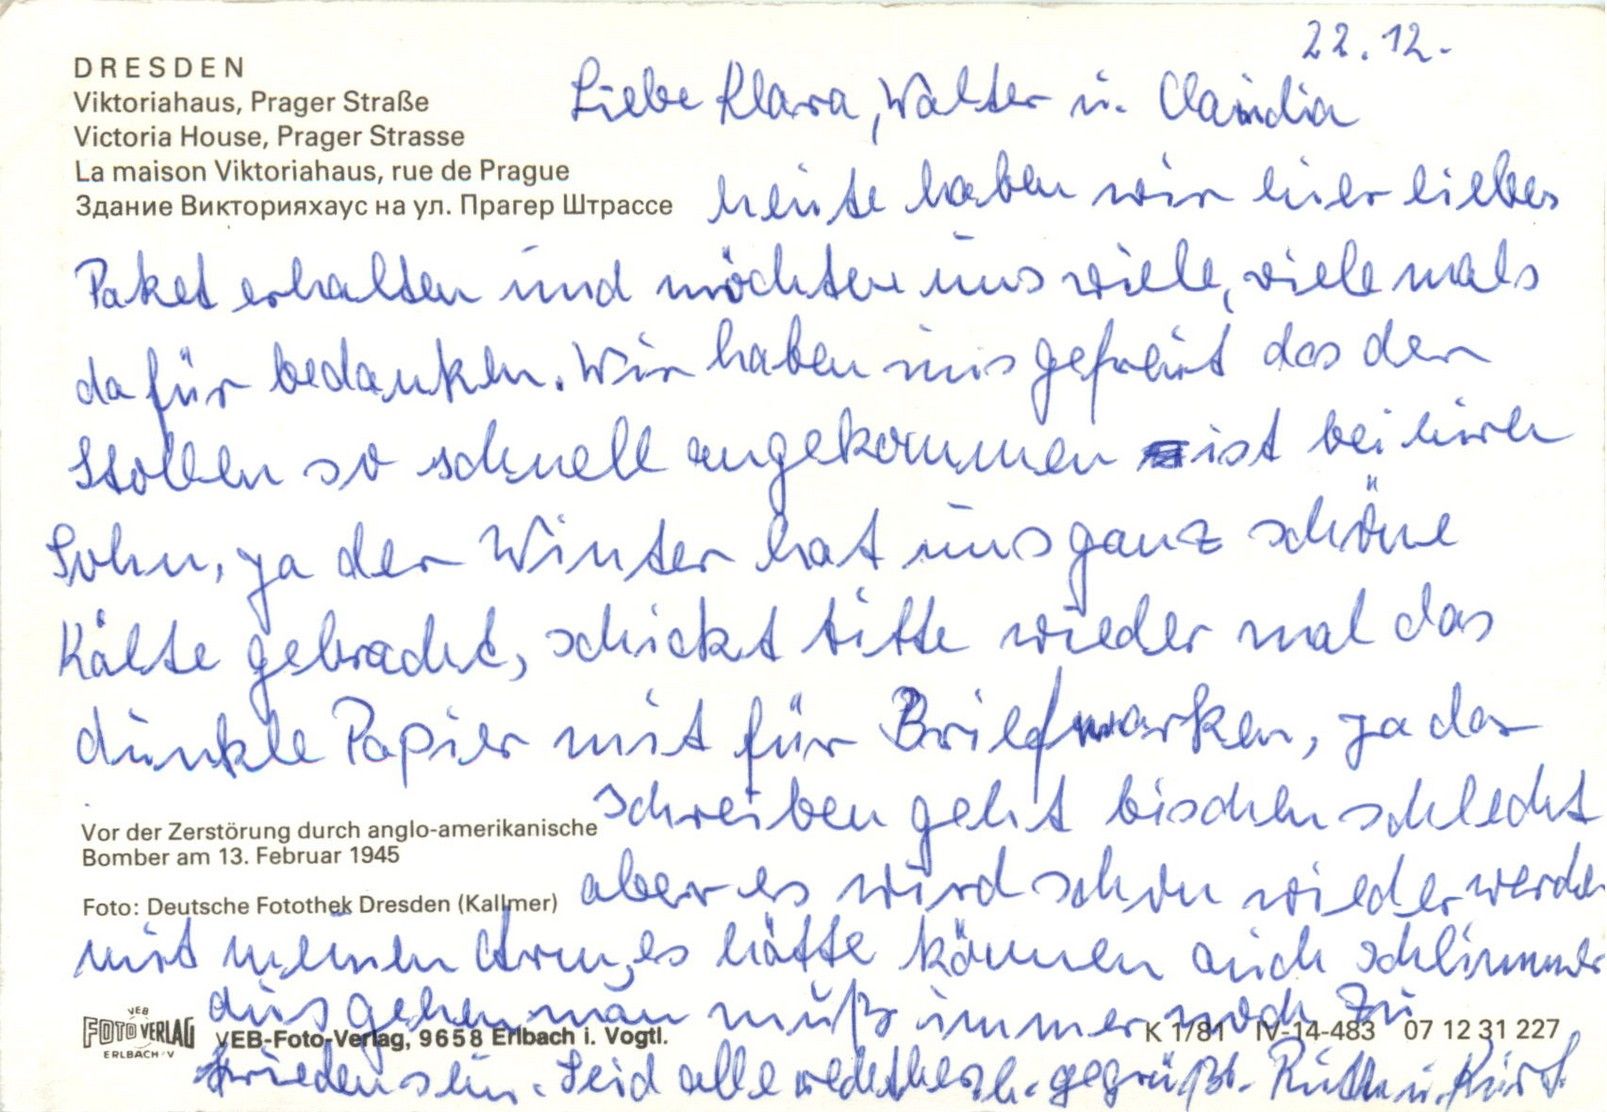 22.12.
DRESDEN
Viktoriahaus, Prager Straße
Victoria House, Prager Strasse
La maison Viktoriahaus, rue de Prague
Здание Викторияхаус на ул. Прагер Штрассе
Liebe Klara, Walter u. Claudia
heute haben wir hier liebes
Paket erhalten und möchten uns viele, viele mals
dafür bedanken. Wir haben uns gefreut das der
Stollen so schnell angekommen ist bei
Sohn, ja der Winter hat uns ganz schöne
Kälte gebracht, schickt bitte wieder mal das
dunkle Papier mit für Briefmarken, ja das
schreiben geht bischen schlecht
aber es wird schon wieder werden
mit meinen Arm, es hätte können auch schlimmer
ausgehen man muß immer noch zu
frieden sein. Seid alle recht herzl. gegrüßt. Ruth u. Kurt.
Vor der Zerstörung durch anglo-amerikanische
Bomber am 13. Februar 1945
Foto: Deutsche Fotothek Dresden (Kallmer)
VEB
FOTO VERLAG
ERLBACH·V
VEB-Foto-Verlag, 9658 Erlbach i. Vogtl.
K 1/81 IV-14-483 07 12 31 227